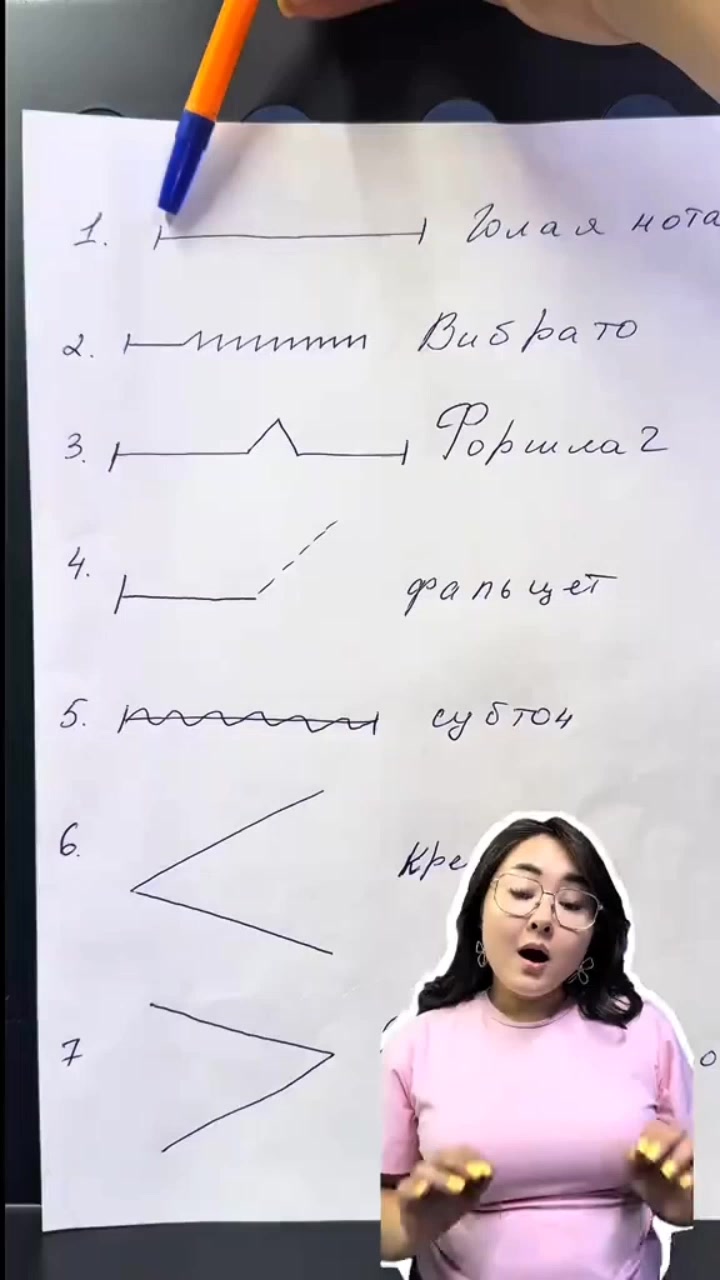 1. Голая нота
2. Вибрато
3. Форшлаг
4. фальцет
5. субтон
6. Кре
7 о